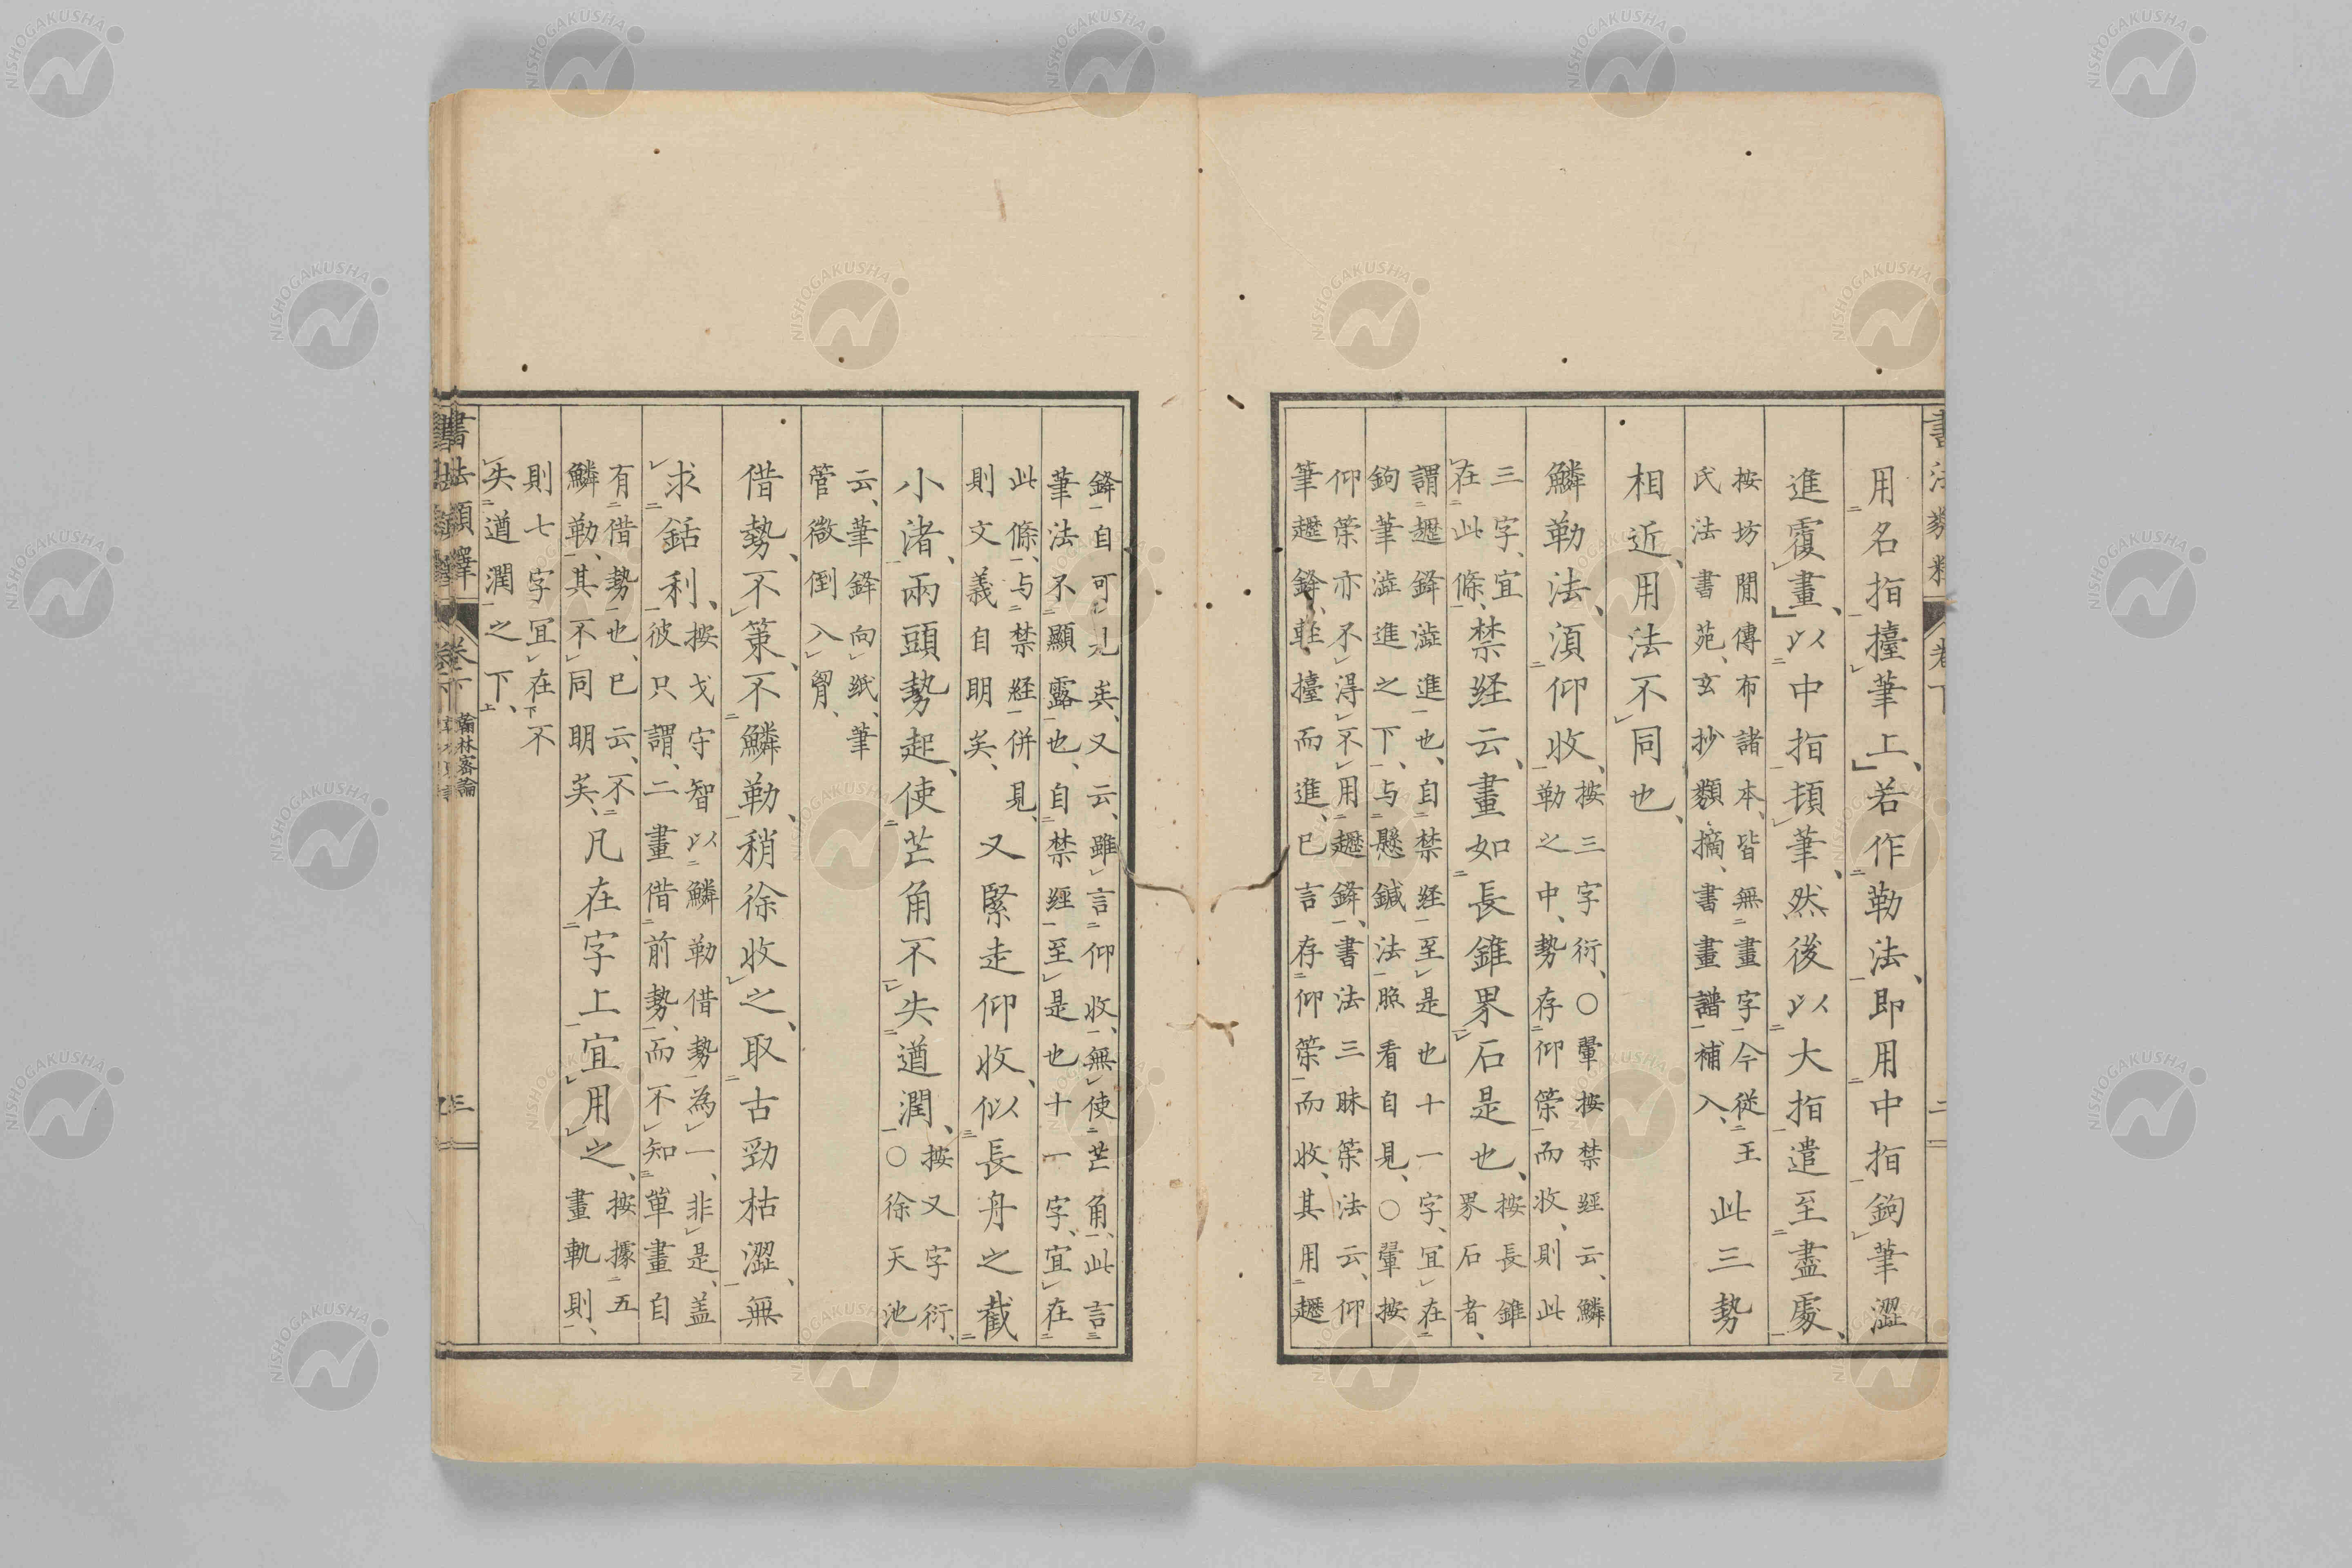 用名指擡筆上、若作勒法、即用中指鉤筆澀
進覆畫、以中指頓筆、然後以大指遣至盡處、
按坊間傳布諸本、皆無畫字今從王
氏法書苑、玄抄類摘、書畫譜補入、
此三勢
相近、用法不同也、
鱗勒法、須仰收、
按三字衍、〇翬按禁経云、鱗
勒之中、勢存仰筞而收、則此
三字、宜
在此條、
禁経云、畫如長錐界石是也、
按長錐
界石者、
謂趯鋒澁進也、自禁経至是也十一字、冝在
鉤筆澁進之下、与懸鍼法照看自見、〇翬按
仰筞亦不得不用趯鋒、書法三昧筞法云、仰
筆趯鋒、輊擡而進、已言存仰筞而收、其用趯
鋒自可見矣、又云、雖言仰收、無使芒角、此言
筆法不顯露也、自禁經至是也十一字、宜在
此條、与禁経併見、
則文義自明矣、
又緊走仰收、似長舟之截
小渚、兩頭勢起、使芒角不失遒潤、
按又字衍、
〇徐天池
云、筆鋒向紙、筆
管微倒入胷、
借勢、不策、不鱗勒、稍徐收之、取古勁枯澀、無
求銛利、
按戈守智以鱗勒借勢為一、非是、盖
彼只謂、二畫借前勢、而不知單畫自
有借勢也、已云、不
鱗勒、其不同明矣、
凡在字上宜用之、
按據五
畫軌則、
則七字冝在不
失遒潤之下、
書法類釋 卷下 翰林密論 三